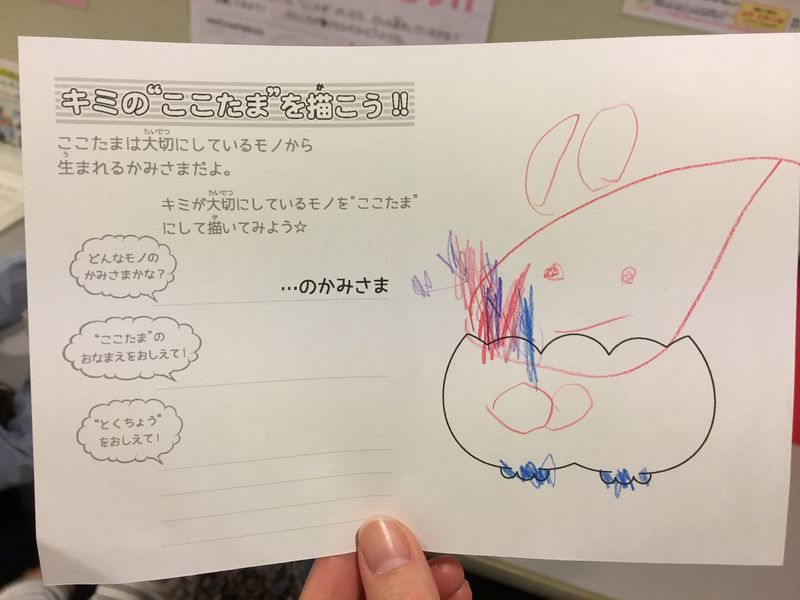 キミの“ここたま”を描こう!!
ここたまは大切にしているモノから
生まれるかみさまだよ。
キミが大切にしているモノを“ここたま”
にして描いてみよう☆
どんなモノの
かみさまかな？
…のかみさま
“ここたま”の
おなまえをおしえて！
“とくちょう”
をおしえて！